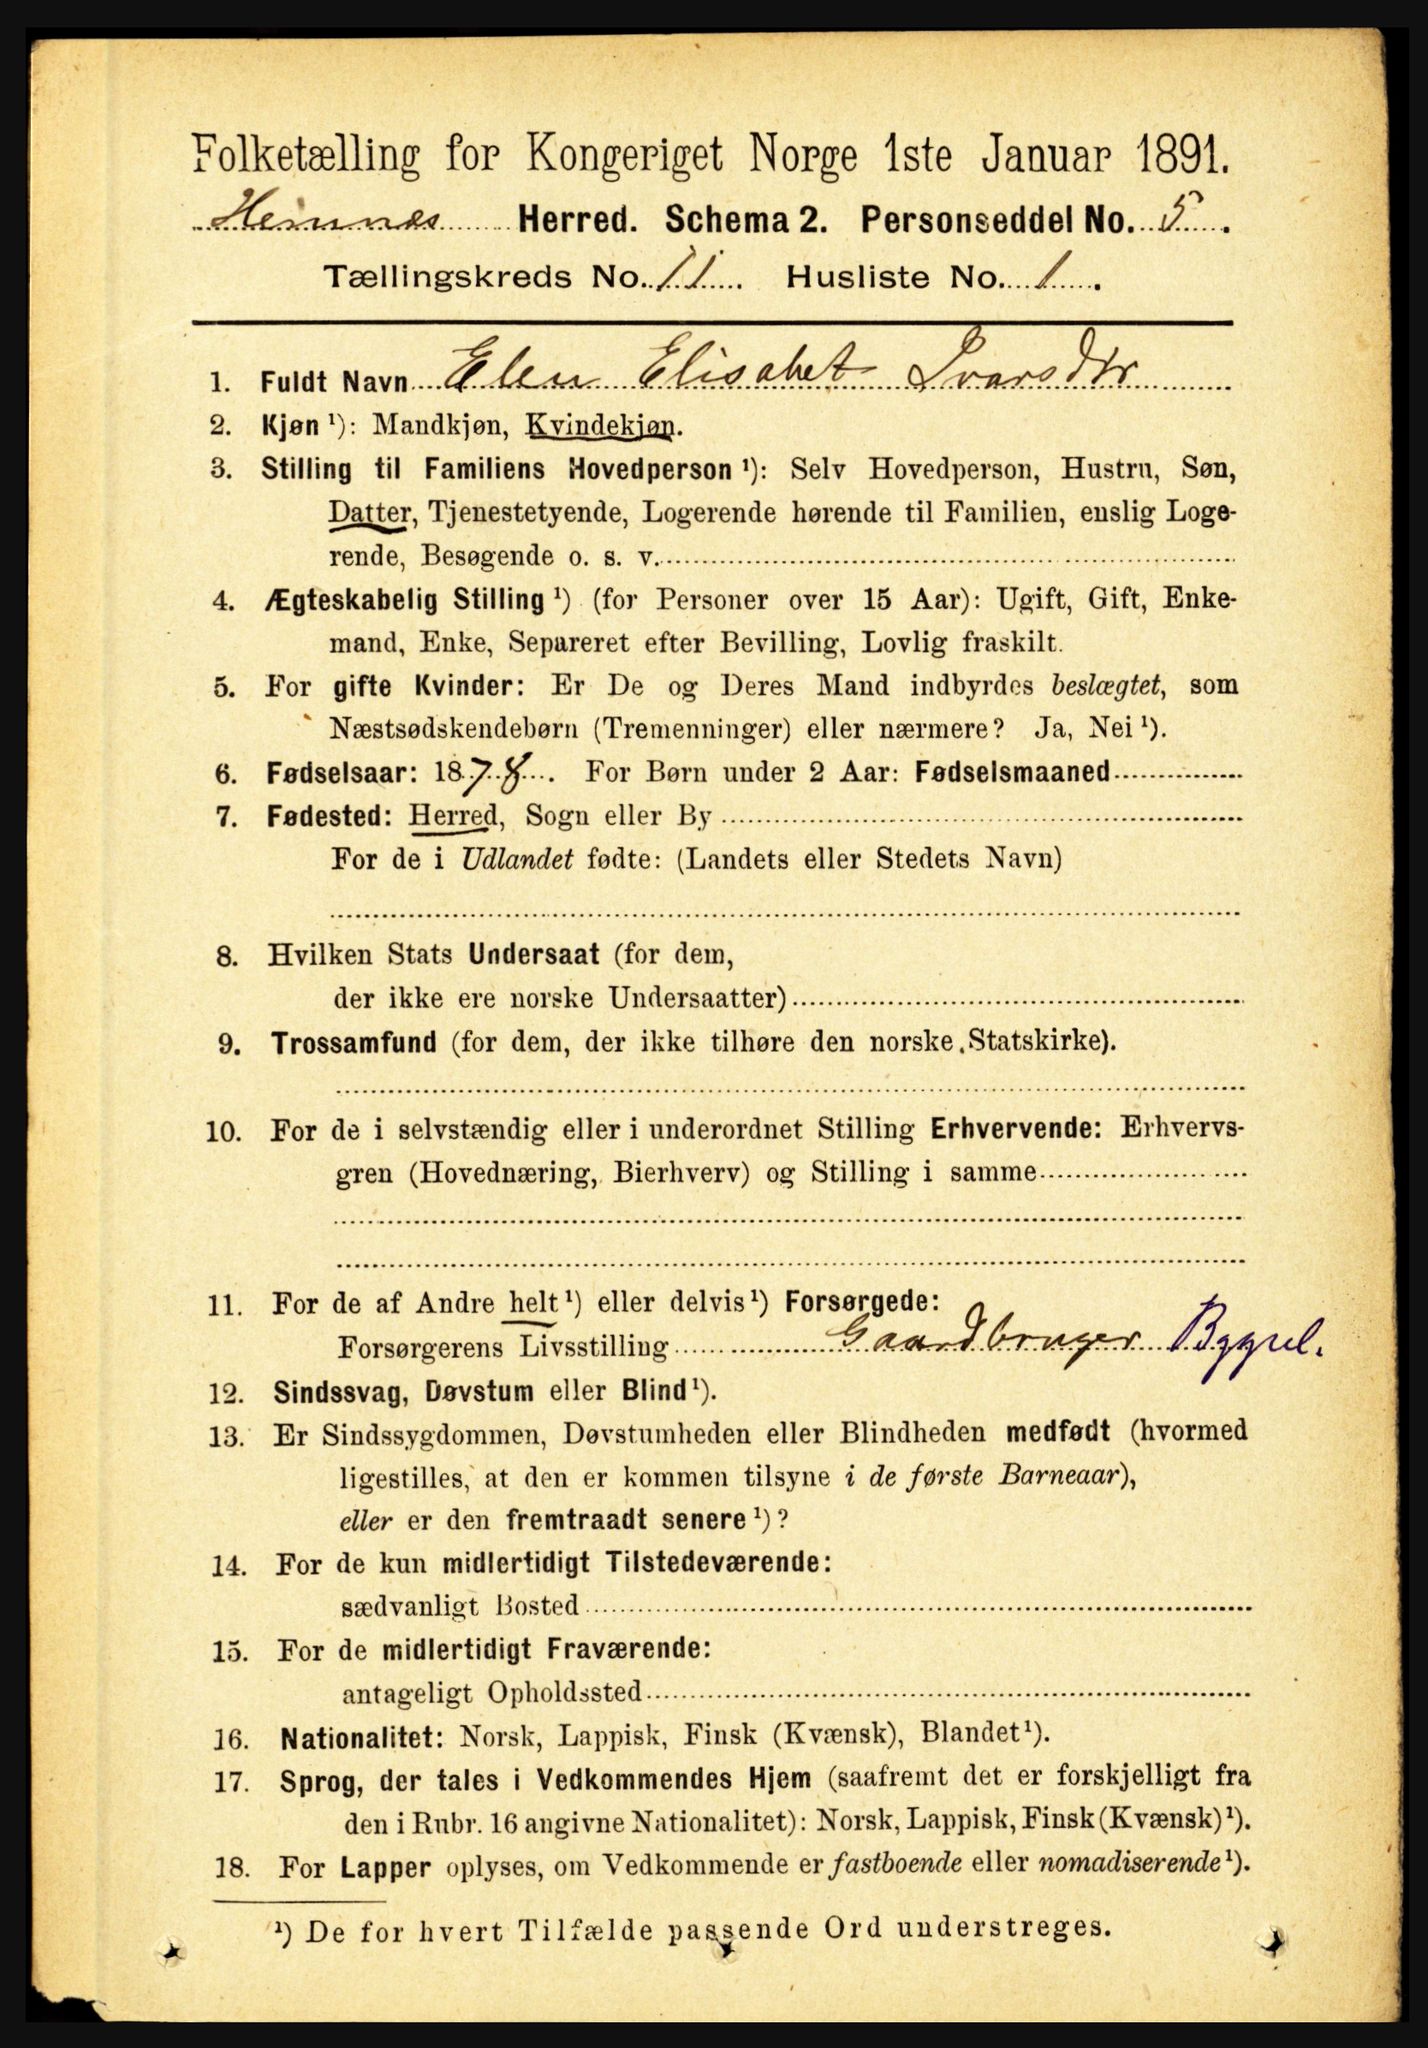 Folketælling for Kongeriget Norge 1ste Januar 1891.
Hemnæs Herred. Schema 2. Personseddel No. 5.
Tællingskreds No. 11. Husliste No. 1.
1. Fuldt Navn Elen Elisabet Ivarsdtr
2. Kjøn ¹): Mandkjøn, Kvindekjøn.
3. Stilling til Familiens Hovedperson ¹): Selv Hovedperson, Hustru, Søn,
Datter, Tjenestetyende, Logerende hørende til Familien, enslig Loge-
rende, Besøgende o. s. v.
4. Ægteskabelig Stilling ¹) (for Personer over 15 Aar): Ugift, Gift, Enke-
mand, Enke, Separeret efter Bevilling, Lovlig fraskilt.
5. For gifte Kvinder: Er De og Deres Mand indbyrdes beslægtet, som
Næstsødskendebørn (Tremenninger) eller nærmere? Ja, Nei ¹).
6. Fødselsaar: 1878. For Børn under 2 Aar: Fødselsmaaned
7. Fødested: Herred, Sogn eller By
For de i Udlandet fødte: (Landets eller Stedets Navn)
8. Hvilken Stats Undersaat (for dem,
der ikke ere norske Undersaatter)
9. Trossamfund (for dem, der ikke tilhøre den norske Statskirke).
10. For de i selvstændig eller i underordnet Stilling Erhvervende: Erhvervs-
gren (Hovednæring, Bierhverv) og Stilling i samme
11. For de af Andre helt ¹) eller delvis ¹) Forsørgede:
Forsørgerens Livsstilling Gaardbruger Bygsel.
12. Sindssvag, Døvstum eller Blind ¹).
13. Er Sindssygdommen, Døvstumheden eller Blindheden medfødt (hvormed
ligestilles, at den er kommen tilsyne i de første Barneaar),
eller er den fremtraadt senere ¹)?
14. For de kun midlertidigt Tilstedeværende:
sædvanligt Bosted
15. For de midlertidigt Fraværende:
antageligt Opholdssted
16. Nationalitet: Norsk, Lappisk, Finsk (Kvænsk), Blandet ¹).
17. Sprog, der tales i Vedkommendes Hjem (saafremt det er forskjelligt fra
den i Rubr. 16 angivne Nationalitet): Norsk, Lappisk, Finsk (Kvænsk) ¹).
18. For Lapper oplyses, om Vedkommende er fastboende eller nomadiserende ¹).
¹) De for hvert Tilfælde passende Ord understreges.